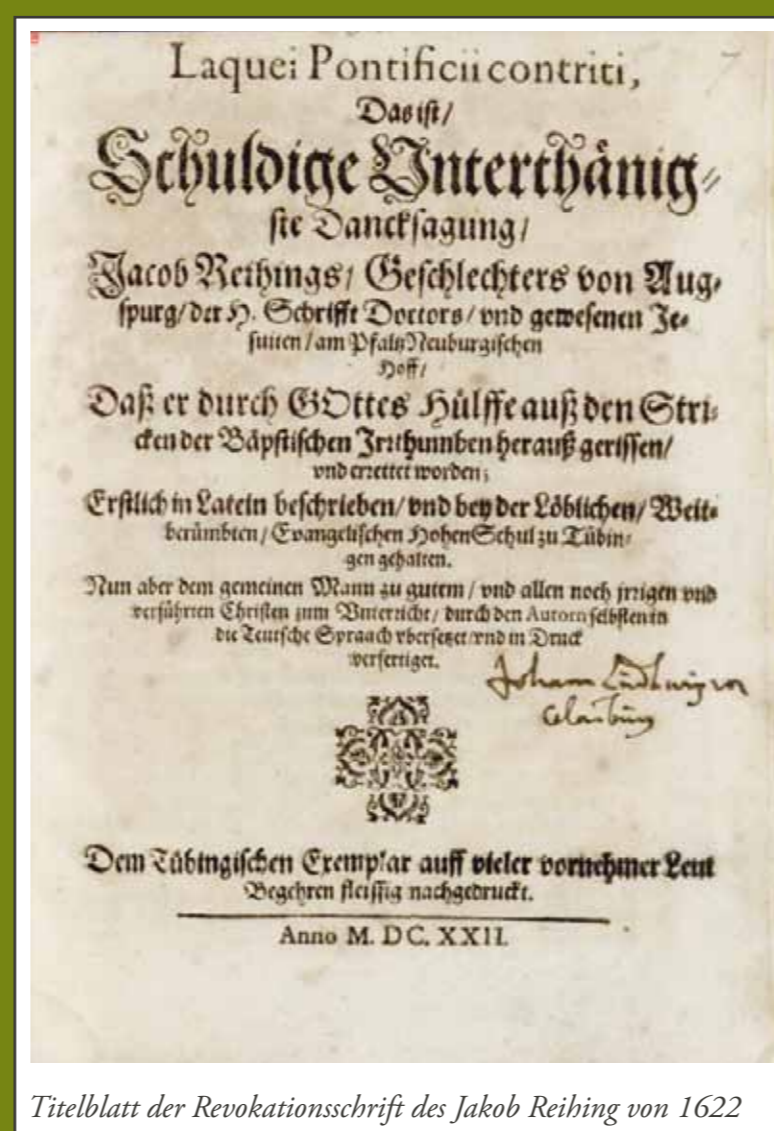 Laquei Pontificii contriti,
Das ist/
Schuldige Vnterthänig-
ste Dancksagung/
Jacob Reihings/ Geschlechters von Aug-
spurg/ der H. Schrifft Doctors/ vnd gewesenen Je-
suiten/ am Pfaltz Neuburgischen
Hoff/
Daß er durch GOttes Hülffe auß den Stri-
cken der Bäpstischen Irrthumben herauß gerissen/
vnd errettet worden;
Erstlich in Latein beschrieben/ vnd bey der Löblichen/ Weit-
berümbten/ Evangelischen HohenSchul zu Tübin-
gen gehalten.
Nun aber dem gemeinen Mann zu gutem/ vnd allen noch jrrigen vnd
verführten Christen zum Vnterricht/ durch den Autorn selbsten in
die Teutsche Spraach vbersetzet vnd in Druck
verfertiget.
Johann Ludwig von
Glauburg
Dem Tübingischen Exemplar auff vieler vornehmer Leut
Begehren fleissig nachgedruckt.
Anno M. DC. XXII.
Titelblatt der Revokationsschrift des Jakob Reihing von 1622